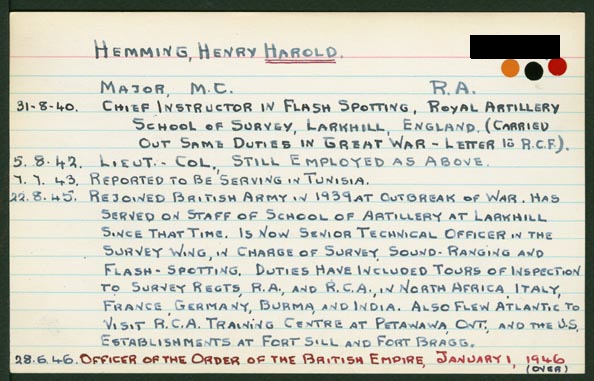 HEMMING, HENRY HAROLD.
MAJOR, M.C. R.A.
31-8-40. CHIEF INSTRUCTOR IN FLASH SPOTTING, ROYAL ARTILLERY
SCHOOL OF SURVEY, LARKHILL, ENGLAND. (CARRIED
OUT SAME DUTIES IN GREAT WAR - LETTER TO R.C.F.).
5.8.42. LIEUT.- COL., STILL EMPLOYED AS ABOVE.
7.7.43. REPORTED TO BE SERVING IN TUNISIA.
22.8.45. REJOINED BRITISH ARMY IN 1939 AT OUTBREAK OF WAR. HAS
SERVED ON STAFF OF SCHOOL OF ARTILLERY AT LARKHILL
SINCE THAT TIME. IS NOW SENIOR TECHNICAL OFFICER IN THE
SURVEY WING, IN CHARGE OF SURVEY, SOUND-RANGING AND
FLASH-SPOTTING. DUTIES HAVE INCLUDED TOURS OF INSPECTION
TO SURVEY REGTS, R.A., AND R.C.A., IN NORTH AFRICA, ITALY,
FRANCE, GERMANY, BURMA, AND INDIA. ALSO FLEW ATLANTIC TO
VISIT R.C.A. TRAINING CENTRE AT PETAWAWA, ONT., AND THE U.S.
ESTABLISHMENTS AT FORT SILL AND FORT BRAGG.
28.6.46. OFFICER OF THE ORDER OF THE BRITISH EMPIRE, JANUARY 1, 1946
(OVER)